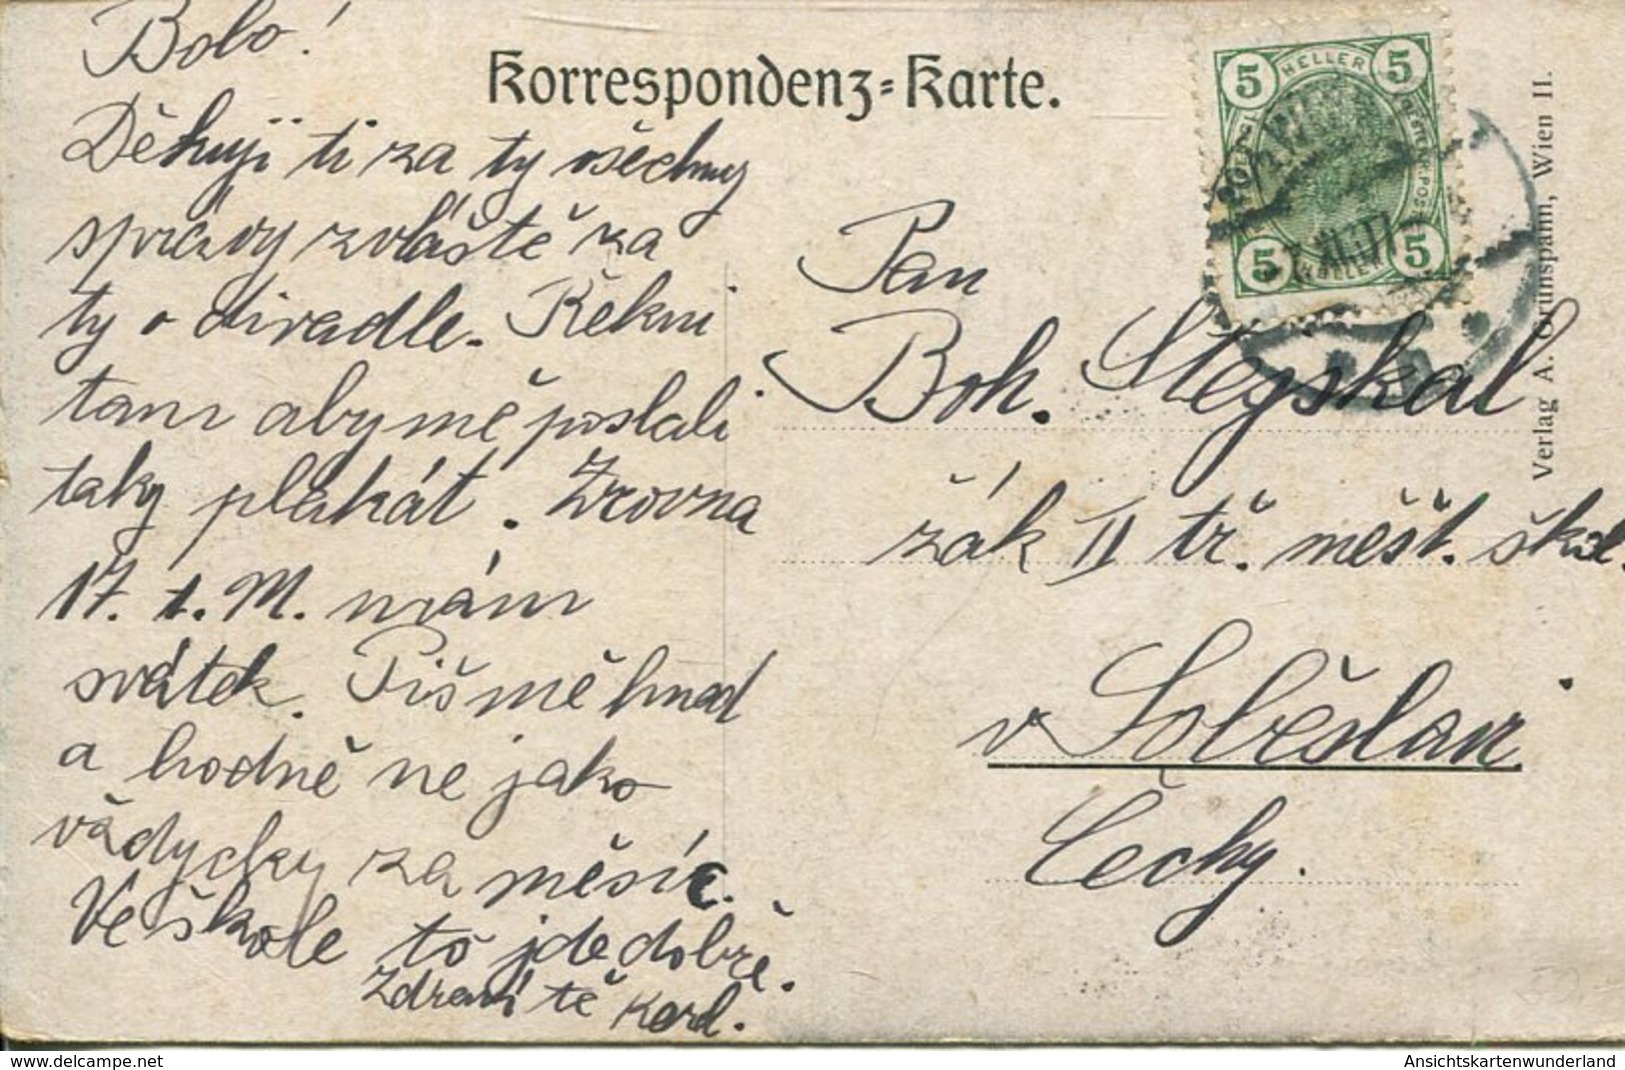 Bobo!
Děkuji ti za ty všechny
správy zvláště za
ty o divadle. Řekni
tam aby mě poslali
taky plakát. Zrovna
17. t. M. mám
svátek. Piš mě hned
a hodně ne jako
vždycky za měsíc.
Ve škole to jde dobře.
Zdraví tě Karel.
Korrespondenz-Karte.
5 HELLER 5
5 HELLER 5
Pan
Boh. Stejskal
žák II tř. měšť. škol.
v Soběslavi
Čechy.
Verlag A. Grünspann, Wien II.
www.delcampe.net
Ansichtskartenwunderland